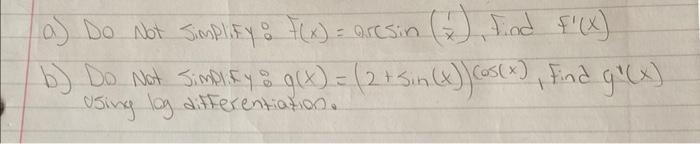 a) Do Not Simplify: f(x) = arcsin (1/x), Find f'(x)
b) Do Not Simplify: g(x) = (2 + sin(x))^cos(x), Find g'(x)
using log differentiation.